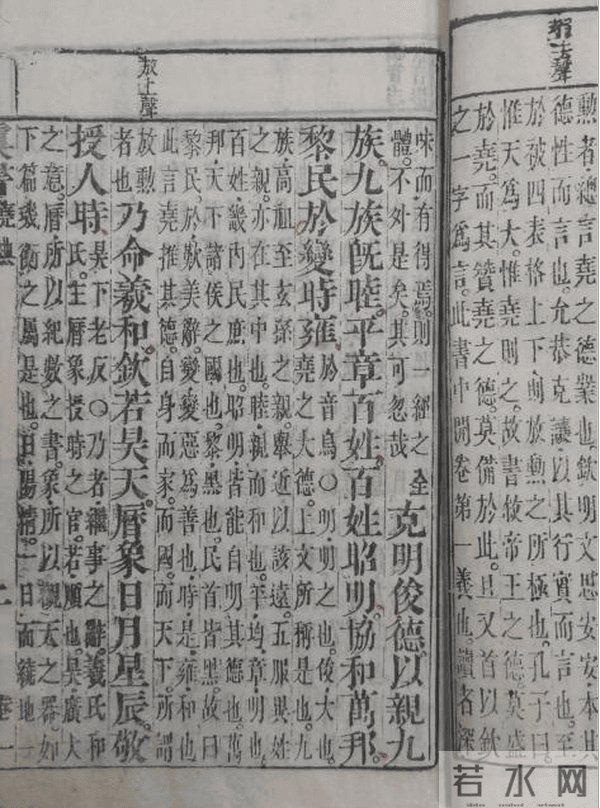 瑕去聲
勲者。總言堯之德業也。欽明文思安安。本其
德性而言也。允恭克讓。以其行實而言也。至
於被四表格上下。則放勲之所極也。孔子曰。
惟天爲大。惟堯則之。故書敘帝王之德。莫盛
於堯。而其贊堯之德。莫備於此。且又首以欽
之一字爲言。此書中開卷第一義也。讀者深
放上聲
味而有得焉。則一經之全
體。不外是矣。其可忽哉
克明俊德。以親九
族。九族旣睦。平章百姓。百姓昭明。協和萬邦。
黎民於變時雍
於音烏○明。明之也。俊。大也。
堯之大德。上文所稱是也。九
族。高祖至玄孫之親。舉近以該遠。五服異姓
之親。亦在其中也。睦。親而和也。平。均。章。明也。
百姓。畿內民庶也。昭明。皆能自明其德也。萬
邦。天下諸侯之國也。黎。黑也。民首皆黑。故曰
黎民。於。歎美辭。變。變惡爲善也。時。是。雍。和也。
此言堯推其德。自身而家。而國。而天下。所謂
放勲
者也
乃命羲和。欽若昊天。曆象日月星辰。敬
授人時
昊下老反。○乃者。繼事之辭。羲氏和
氏。主曆象授時之官。若。順也。昊。廣大
之意。曆。所以紀數之書。象。所以觀天之器。如
下篇璣衡之屬是也。日。陽精。一日而繞地一
書堯典 二 卷一
若水网